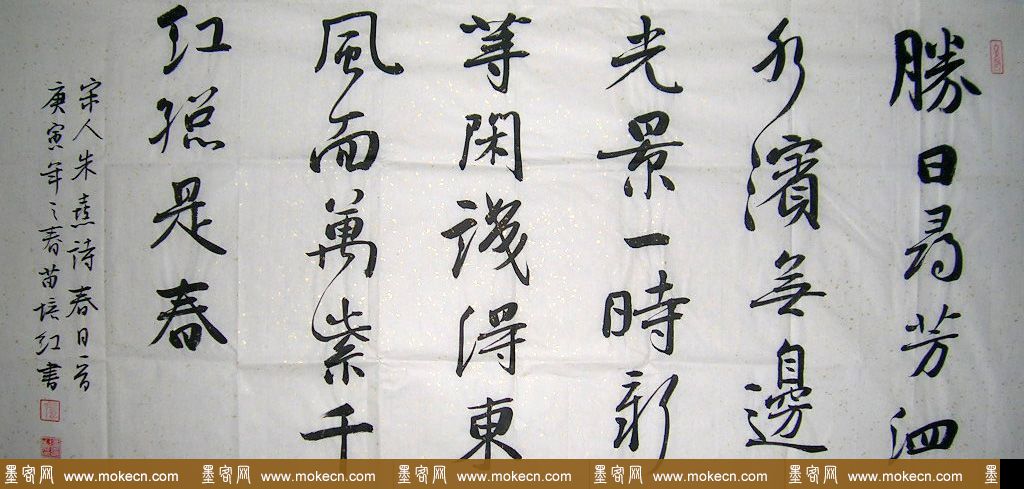 勝日尋芳泗
水濱無邊
光景一時新
等閑識得東
風面萬紫千
紅總是春
宋人朱熹詩春日一首
庚寅年之春苗培红書
墨客网 www.mokecn.com 墨客网 www.mokecn.com 墨客网 www.mokecn.com 墨客网 www.mokecn.com 墨客网 www.mokecn.com 墨客